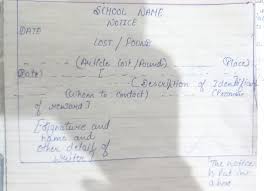 SCHOOL NAME
NOTICE
DATE
LOST / FOUND
(Article lost/Found) (Place)
(Date) [
(Description of
(Whom to contact)
of reward]
[Signature and
name and
other details of
writer]
The notice
is put in
a box